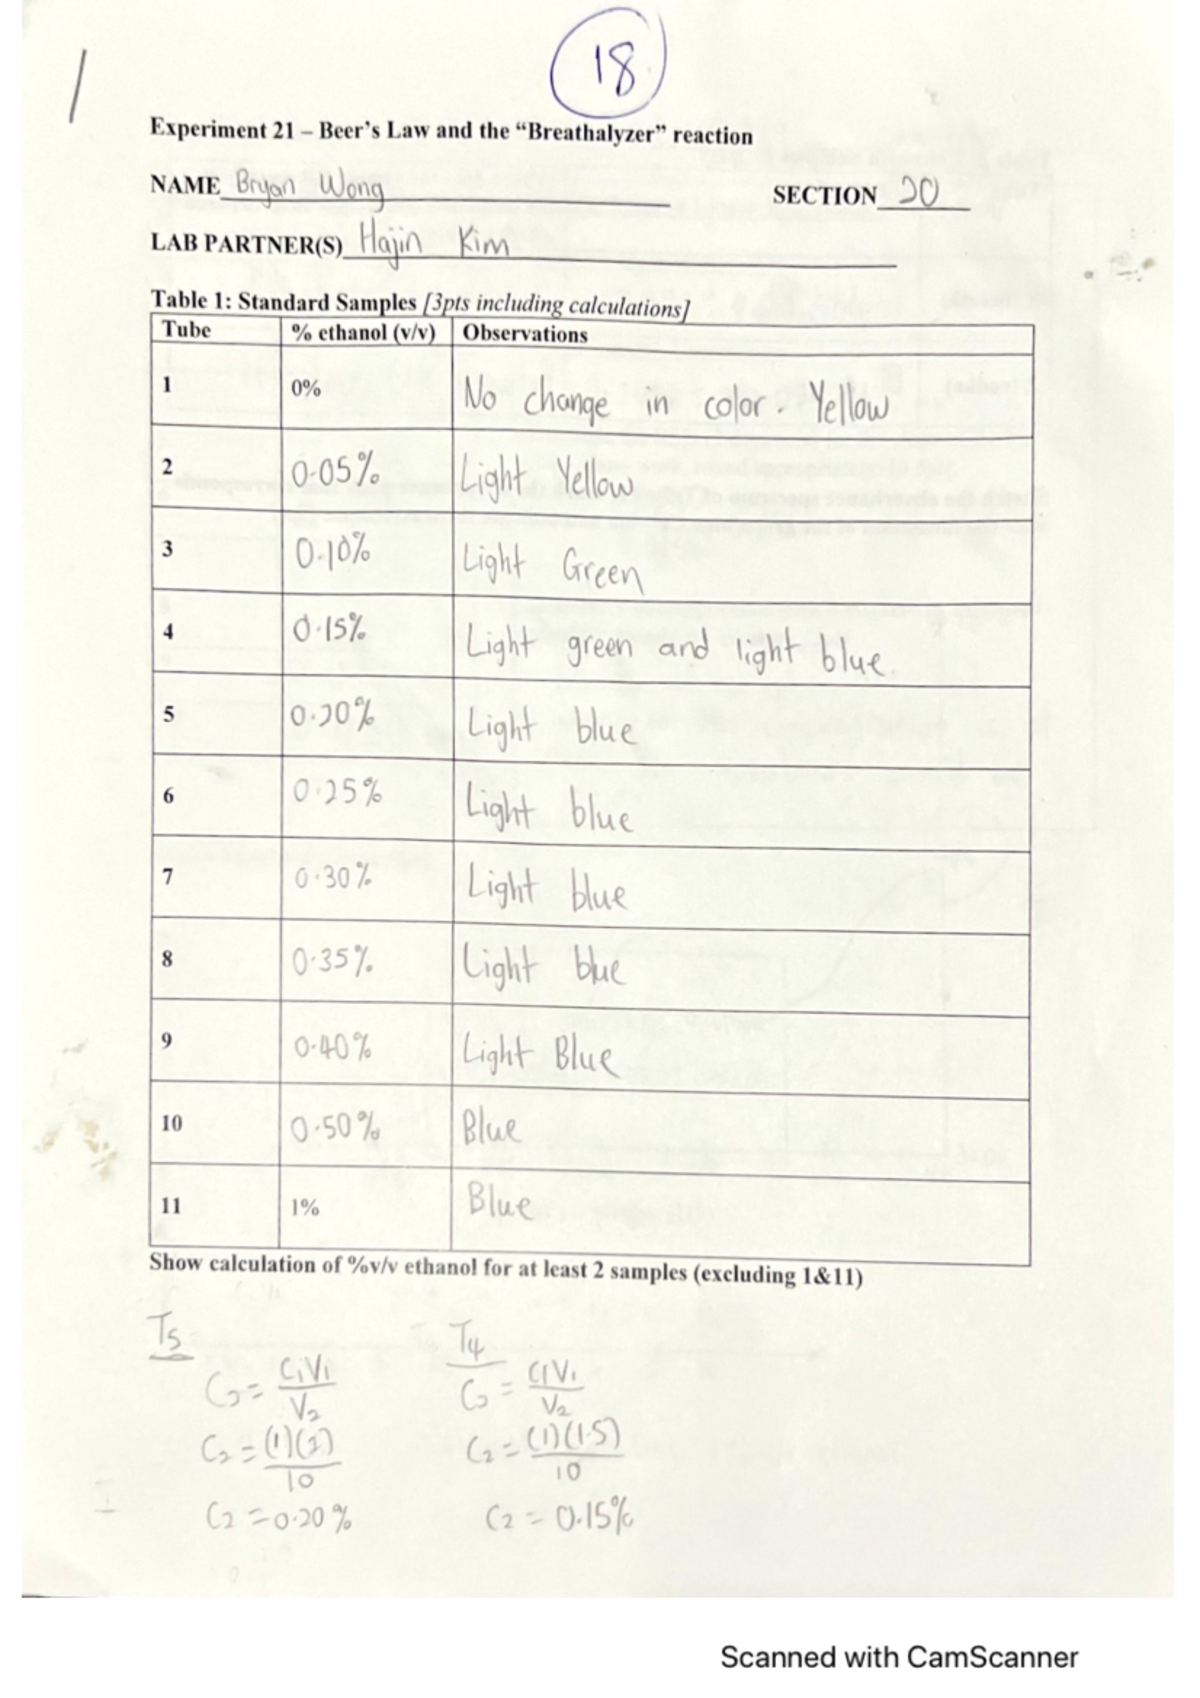 18
Experiment 21 – Beer's Law and the "Breathalyzer" reaction
NAME Bryan Wong SECTION 20
LAB PARTNER(S) Hajin Kim
Table 1: Standard Samples [3pts including calculations]
Tube % ethanol (v/v) Observations
1 0% No change in color. Yellow
2 0.05% Light Yellow
3 0.10% Light Green
4 0.15% Light green and light blue.
5 0.20% Light blue
6 0.25% Light blue
7 0.30% Light blue
8 0.35% Light blue
9 0.40% Light Blue
10 0.50% Blue
11 1% Blue
Show calculation of %v/v ethanol for at least 2 samples (excluding 1&11)
T5 T4
C2 = C1V1 / V2 C2 = C1V1 / V2
C2 = (1)(2) / 10 C2 = (1)(1.5) / 10
C2 = 0.20% C2 = 0.15%
Scanned with CamScanner